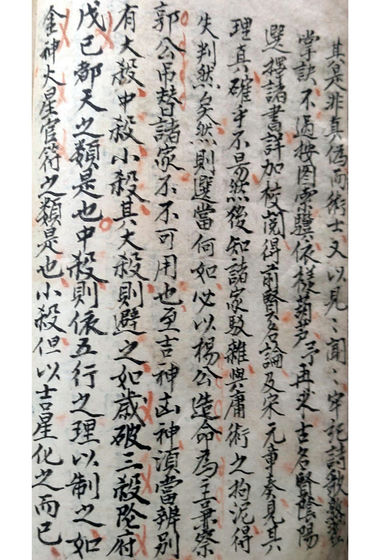 其是非真偽而術士又以見〻聞〻牢記詩歌
掌訣不過按图索驥依樣葫芦予再求古名賢陰陽
選擇諸書詳加校閱得前賢名論及宋元章奏見其
理真確乎不易然後知諸家駁雜與庸術之拘泥得
失判然矣然則選當何如必以楊公造命為主兼察
郭公吊替諸家亦不可用也至吉神凶神須當辨別
有大殺中殺小殺其大殺則避之如歲破三殺坐府
戊己都天之類是也中殺則依五行之理以制之如
金神大星官符之類是也小殺但以吉星化之而已